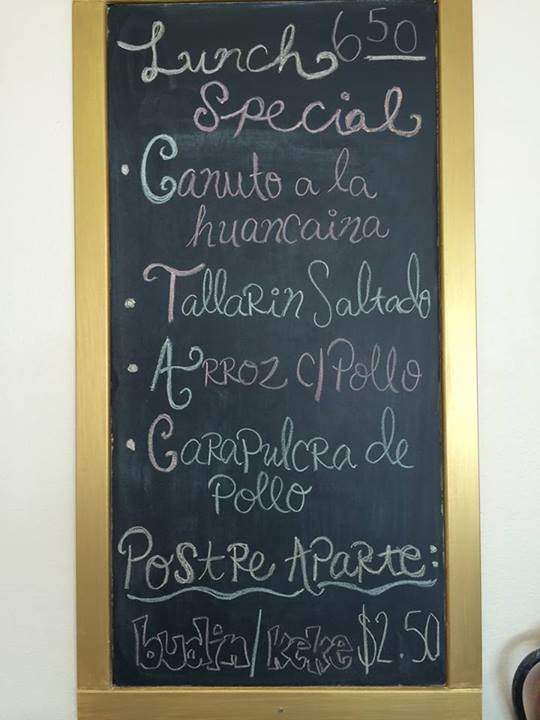 Lunch 6 50
Special
· Canuto a la
huancaina
· Tallarin Saltado
· Arroz c/Pollo
· Carapulcra de
Pollo
Postre Aparte:
budin/keke $2.50